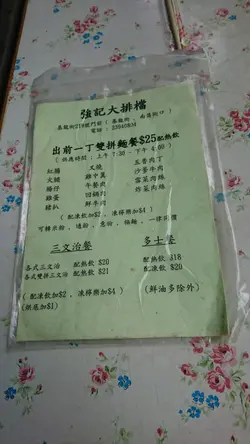 強記大排檔
出前一丁雙拼麵餐$25配熱飲
(供應時間：上午 7:30 - 下午 4:00)
紅腸 叉燒 五香肉丁
火腿 雞中翼 沙爹牛肉
腸仔 午餐肉 雪菜肉絲
雞蛋 回鍋肉 炸菜肉絲
豬扒 鮮牛肉
(配凍飲加$2，凍檸樂加$4)
三文治餐 多士餐
各式三文治 配熱飲 $20 配熱飲 $18
各式雙拼三文治 配熱飲 $21 配凍飲 $20
(配凍飲加$2，凍檸樂加$4) (鮮油多除外)
(烘底加$1)